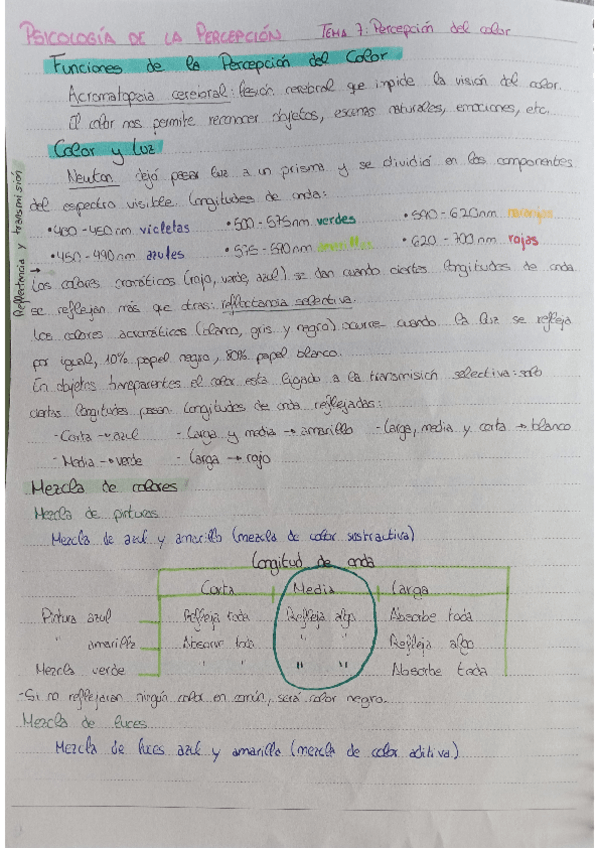 PSICOLOGÍA DE LA PERCEPCIÓN TEMA 7: Percepción del color
Funciones de la Percepción del Color
Acromatopsia cerebral: lesión cerebral que impide la visión del color.
El color nos permite reconocer objetos, escenas naturales, emociones, etc.
Color y Luz
Newton dejó pasar luz a un prisma y se dividió en los componentes
del espectro visible. Longitudes de onda:
• 400-450nm violetas • 500-575nm verdes • 590-620nm naranjas
• 450-490nm azules • 575-590nm amarillos • 620-700nm rojas
Reflectancia y transmisión
→ Los colores cromáticos (rojo, verde, azul) se dan cuando ciertas longitudes de onda
se reflejan más que otras: reflectancia selectiva.
Los colores acromáticos (blanco, gris y negro) ocurre cuando la luz se refleja
por igual, 10% papel negro, 80% papel blanco.
En objetos transparentes el color está ligado a la transmisión selectiva: solo
ciertas longitudes pasan. Longitudes de onda reflejadas:
- Corta → azul - Larga y media → amarillo - Larga, media y corta → blanco
- Media → verde - Larga → rojo
Mezcla de colores
Mezcla de pinturas
Mezcla de azul y amarillo (mezcla de color sustractiva)
Longitud de onda
Corta Media Larga
Pintura azul Refleja toda Refleja algo Absorbe toda
" amarilla Absorbe toda " " Refleja algo
Mezcla verde " " " " Absorbe toda
- Si no reflejaran ningún color en común, será color negro.
Mezcla de luces
Mezcla de luces azul y amarilla (mezcla de color aditiva)